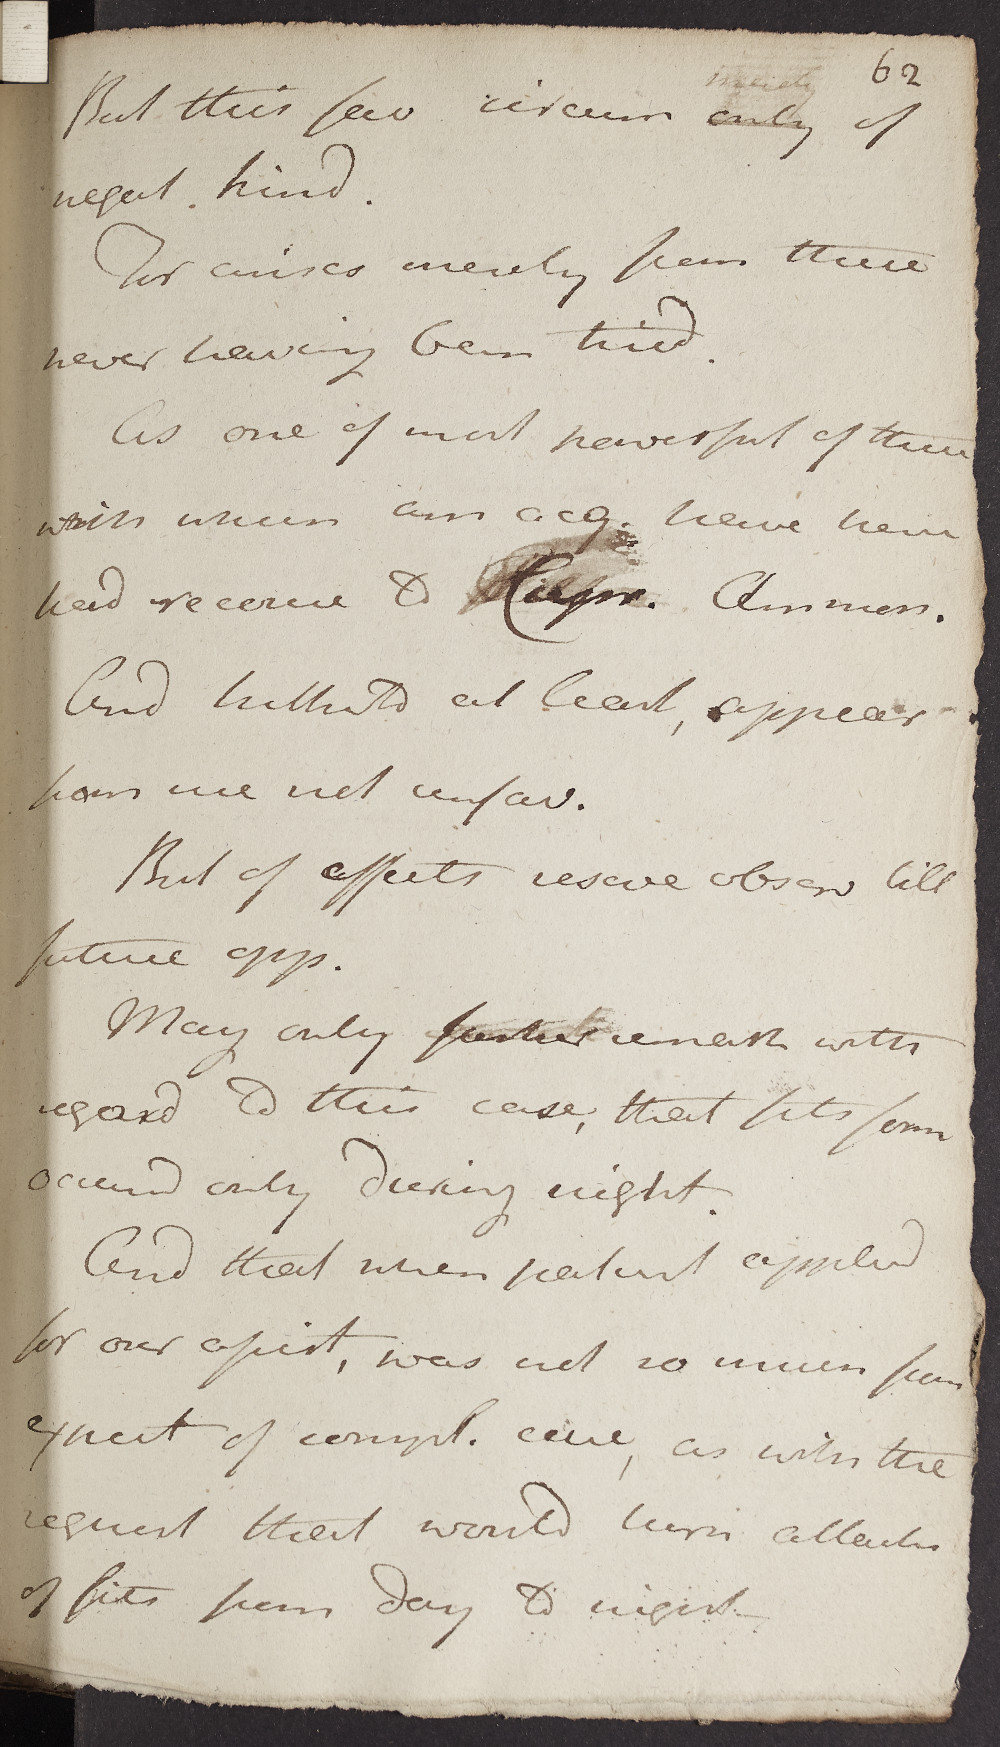 62
But this fav circum only of
negat. kind.
For arises merely from these
never having been tried.
As one of most powerful of these
with whom am acq. have here
had recourse to Cupr. Ammon.
And hitherto at least, appear
from use not unfav.
But of effects reserve observ till
future opp.
May only further remark with
regard to this case, that fits form
occurrd only during night.
And that when patient applied
for our assist, was not so much from
expect of compl. cure, as with the
request that would turn attacks
of fits from day to night